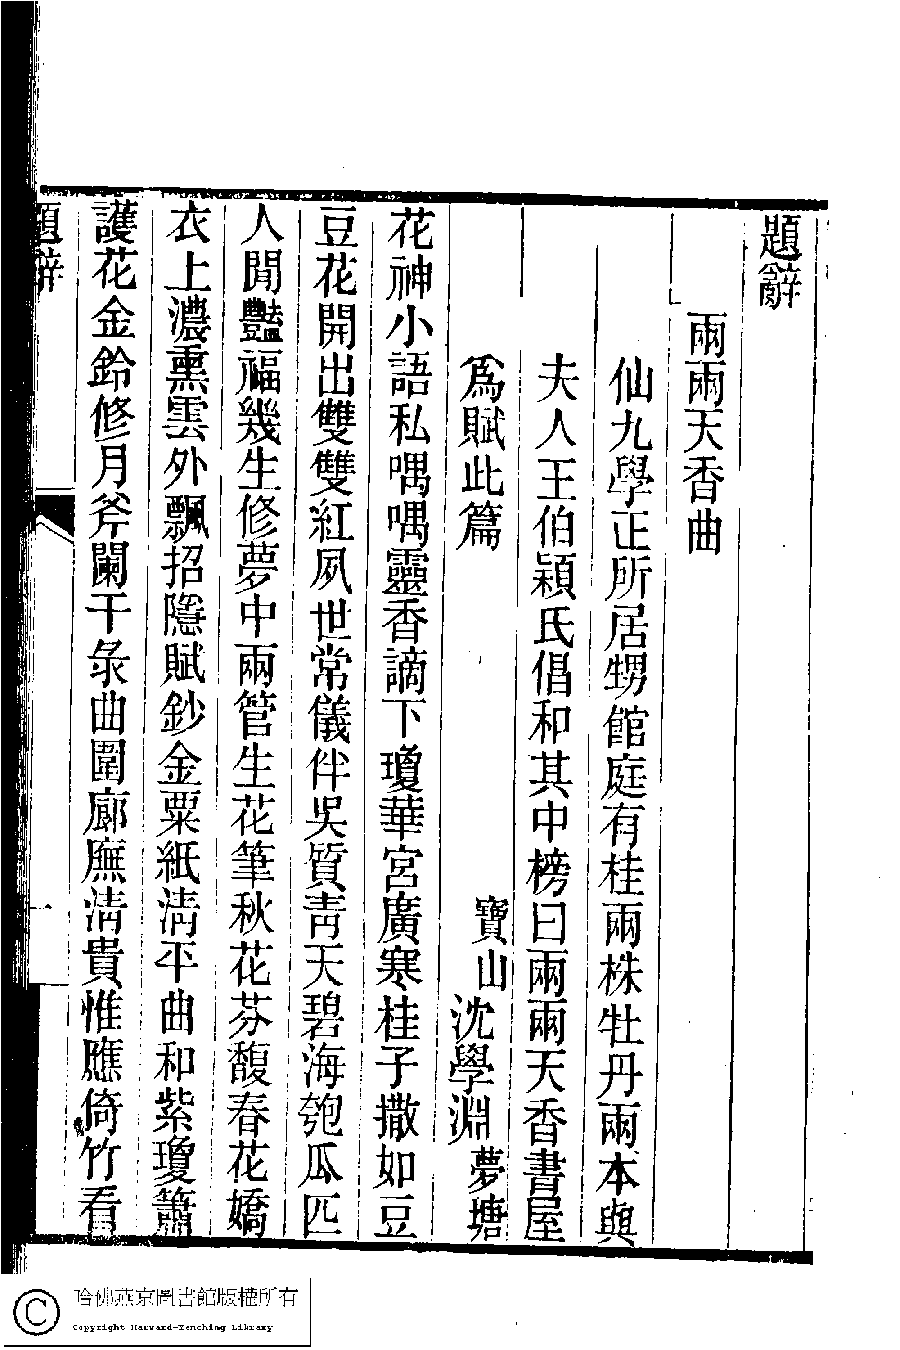 題辭
兩兩天香曲
仙九學正所居甥館庭有桂兩株牡丹兩本與
夫人王伯穎氏倡和其中榜曰兩兩天香書屋
為賦此篇
寶山沈學淵夢塘
花神小語私喁喁靈香謫下瓊華宮廣寒桂子撒如豆
豆花開出雙雙紅夙世常儀伴吳質靑天碧海匏瓜匹
人閒豔福幾生修夢中兩管生花筆秋花芬馥春花嬌
衣上濃熏雲外飄招隱賦鈔金粟紙淸平曲和紫瓊簫
護花金鈴修月斧闌干彔曲圍廊廡淸貴惟應倚竹看
題辭
一
哈佛燕京圖書館版權所有
Copyright Harvard-Yenching Library